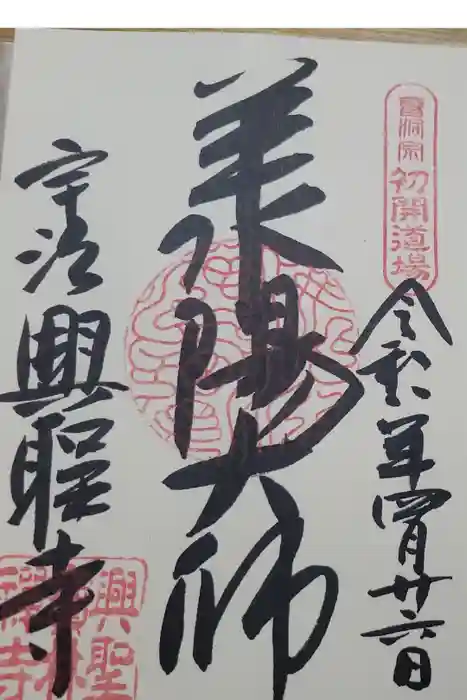 曹洞宗初開道場
令和年四月廿六日
承陽大師
宇治
興聖寺
興聖
寶林
禪寺